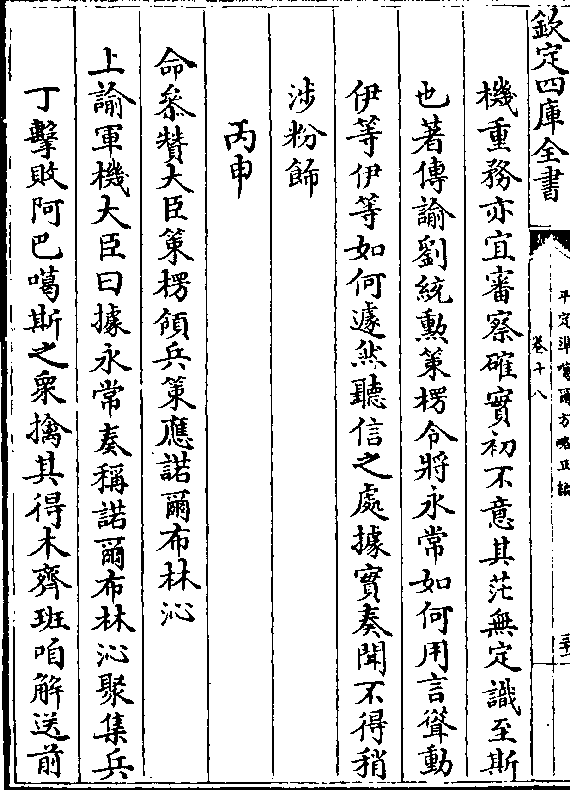 欽定四庫全書
平定準噶爾方略正編
卷十八
機重務亦宜審察確實初不意其茫無定識至斯
也著傳諭劉統勲策楞令將永常如何用言聳動
伊等伊等如何遽然聽信之處據實奏聞不得稍
涉粉飾
丙申
命叅贊大臣策楞領兵策應諾爾布林沁
上諭軍機大臣曰據永常奏稱諾爾布林沁聚集兵
丁擊敗阿巴噶斯之衆擒其得木齊班咱解送前